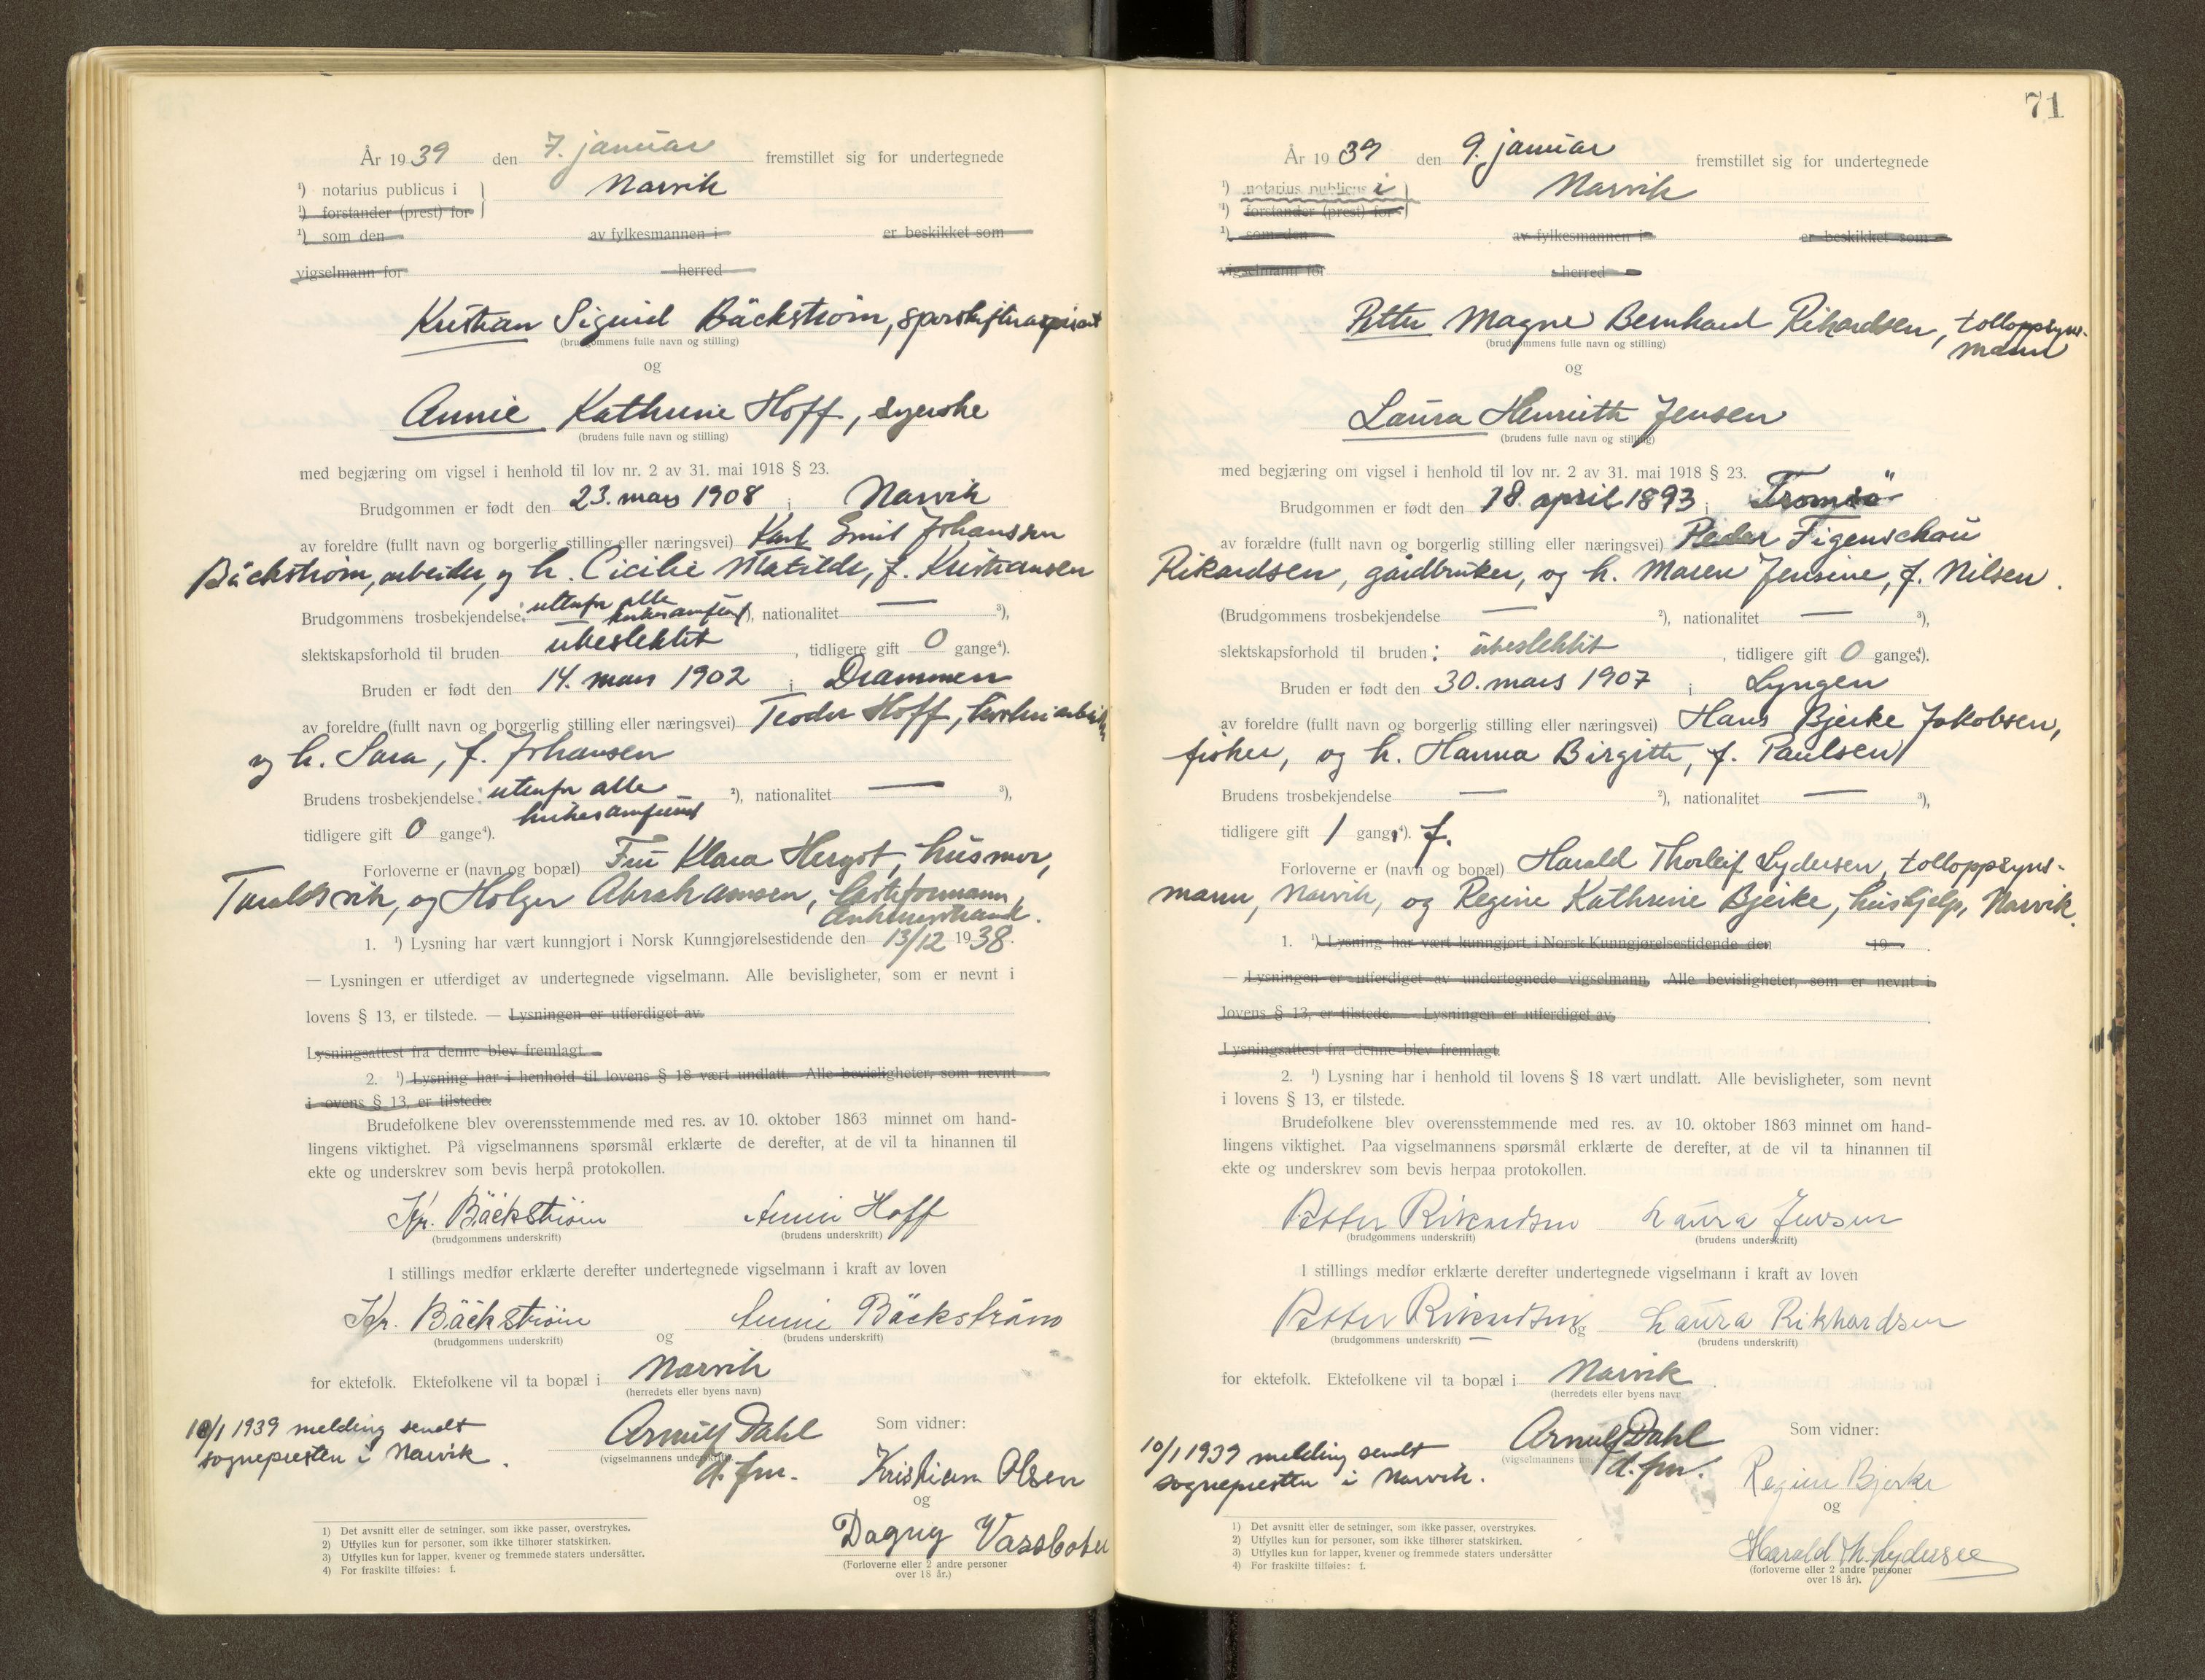 År 1939 den 7. januar fremstillet sig for undertegnede
¹) notarius publicus i } Narvik
¹) forstander (prest) for
¹) som den av fylkesmannen i er beskikket som
vigselmann for herred
Kristian Sigurd Bäckstrøm, sporskifteraspirant
(brudgommens fulle navn og stilling)
og
Annie Kathrine Hoff, syerske
(brudens fulle navn og stilling)
med begjæring om vigsel i henhold til lov nr. 2 av 31. mai 1918 § 23.
Brudgommen er født den 23. mars 1908 i Narvik
av foreldre (fullt navn og borgerlig stilling eller næringsvei) Karl Emil Johanssen
Bäckstrøm, arbeider, og h. Cicilie Matilde, f. Kristiansen
Brudgommens trosbekjendelse: utenfor alle kirkesamfund ²), nationalitet — ³),
slektskapsforhold til bruden ubeslektet, tidligere gift 0 gange⁴).
Bruden er født den 14. mars 1902 i Drammen
av foreldre (fullt navn og borgerlig stilling eller næringsvei) Teodor Hoff,
og h. Sara, f. Johansen
Brudens trosbekjendelse: utenfor alle kirkesamfund ²), nationalitet — ³),
tidligere gift 0 gange⁴).
Forloverne er (navn og bopæl) Fru Klara Hergot, husmor,
Taraldsvik, og Holger Abrahamsen, lasteformann, Ankenesstrand.
1. ¹) Lysning har vært kunngjort i Norsk Kunngjørelsestidende den 13/12 1938.
— Lysningen er utferdiget av undertegnede vigselmann. Alle bevisligheter, som er nevnt i
lovens § 13, er tilstede. — Lysningen er utferdiget av
Lysningsattest fra denne blev fremlagt.
2. ¹) Lysning har i henhold til lovens § 18 vært undlatt. Alle bevisligheter, som nevnt
i ovens § 13, er tilstede.
Brudefolkene blev overensstemmende med res. av 10. oktober 1863 minnet om hand-
lingens viktighet. På vigselmannens spørsmål erklærte de derefter, at de vil ta hinannen til
ekte og underskrev som bevis herpå protokollen.
Kr. Bäckstrøm Annie Hoff
(brudgommens underskrift) (brudens underskrift)
I stillings medfør erklærte derefter undertegnede vigselmann i kraft av loven
Kr. Bäckstrøm og Annie Bäckstrøm
(brudgommens underskrift) (brudens underskrift)
for ektefolk. Ektefolkene vil ta bopæl i Narvik
(herredets eller byens navn)
10/1 1939 melding sendt
sognepresten i Narvik.
Arnulf Dahl
(vigselmannens underskrift)
d. fm.
Som vidner:
Kristian Olsen
og
Dagny Vassbotn
(Forloverne eller 2 andre personer
over 18 år.)
1) Det avsnitt eller de setninger, som ikke passer, overstrykes.
2) Utfylles kun for personer, som ikke tilhører statskirken.
3) Utfylles kun for lapper, kvener og fremmede staters undersåtter.
4) For fraskilte tilføies: f.
71
År 1939 den 9. januar fremstillet sig for undertegnede
¹) notarius publicus i } Narvik
¹) forstander (prest) for
¹) som den av fylkesmannen i er beskikket som
vigselmann for herred
Petter Magne Bernhard Rikardsen, tolloppsyns-
mann
(brudgommens fulle navn og stilling)
og
Laura Henriette Jensen
(brudens fulle navn og stilling)
med begjæring om vigsel i henhold til lov nr. 2 av 31. mai 1918 § 23.
Brudgommen er født den 18. april 1893 i Tromsö
av forældre (fullt navn og borgerlig stilling eller næringsvei) Peder Figenschou
Rikardsen, gårdbruker, og h. Maren Jensine, f. Nilsen.
(Brudgommens trosbekjendelse — ²), nationalitet — ³),
slektskapsforhold til bruden: ubeslektet, tidligere gift 0 gange⁴).
Bruden er født den 30. mars 1907 i Lyngen
av foreldre (fullt navn og borgerlig stilling eller næringsvei) Hans Bjerke Jakobsen,
fisker, og h. Hanna Birgitte, f. Paulsen
Brudens trosbekjendelse — ²), nationalitet — ³),
tidligere gift 1 gang⁴). f.
Forloverne er (navn og bopæl) Harald Thorleif Lydersen, tolloppsyns-
mann, Narvik, og Regine Kathrine Bjerke, hushjelp, Narvik.
1. ¹) Lysning har vært kunngjort i Norsk Kunngjørelsestidende den 19
— Lysningen er utferdiget av undertegnede vigselmann. Alle bevisligheter, som er nevnt i
lovens § 13, er tilstede. — Lysningen er utferdiget av
Lysningsattest fra denne blev fremlagt.
2. ¹) Lysning har i henhold til lovens § 18 vært undlatt. Alle bevisligheter, som nevnt
i lovens § 13, er tilstede.
Brudefolkene blev overensstemmende med res. av 10. oktober 1863 minnet om hand-
lingens viktighet. Paa vigselmannens spørsmål erklærte de derefter, at de vil ta hinannen til
ekte og underskrev som bevis herpaa protokollen.
Petter Rikardsen Laura Jensen
(brudgommens underskrift) (brudens underskrift)
I stillings medfør erklærte derefter undertegnede vigselmann i kraft av loven
Petter Rikardsen og Laura Rikhardsen
(brudgommens underskrift) (brudens underskrift)
for ektefolk. Ektefolkene vil ta bopæl i Narvik
(herredets eller byens navn
10/1 1939 melding sendt
sognepresten i Narvik.
Arnulf Dahl
(vigselmannens
d. fm.
Som vidner:
Regine Bjerke
og
Harald Th. Lydersen
(forloverne eller 2 andre personer
over 18 år).
1) Det avsnitt eller de setninger, som ikke passer, overstrykes.
2) Utfylles kun for personer, som ikke tilhører statskirken.
3) Utfylles kun for lapper, kvener og fremmede staters undersåtter
4) For fraskilte tilføies: f.